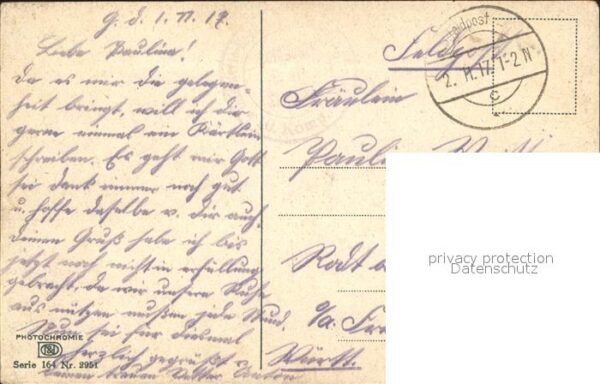 G. d. 1. 11. 17.
Liebe Paulina!
Da es mir die gelegen-
heit bringt, will ich dir
gerne einmal ein Kärtlein
schreiben. Es geht mir Gott
sei dank immer noch gut
u. hoffe daselbe v. Dir auch.
deinen Gruß habe ich bis
jetzt noch nicht in erfüllung
gebracht, da wir unsere Ruhe
aus nützen mußen jede Stund.
Nun sei für diesmal
herzlich gegrüßt
deinen treuen Vetter
PHOTOCHROMIE
Serie 164 Nr. 2951
Feldpost
2. 11. 17. 1-2 N
c
Feldp
Fräulein
Rodt
o/a. Fr
Württ.
privacy protection
Datenschutz